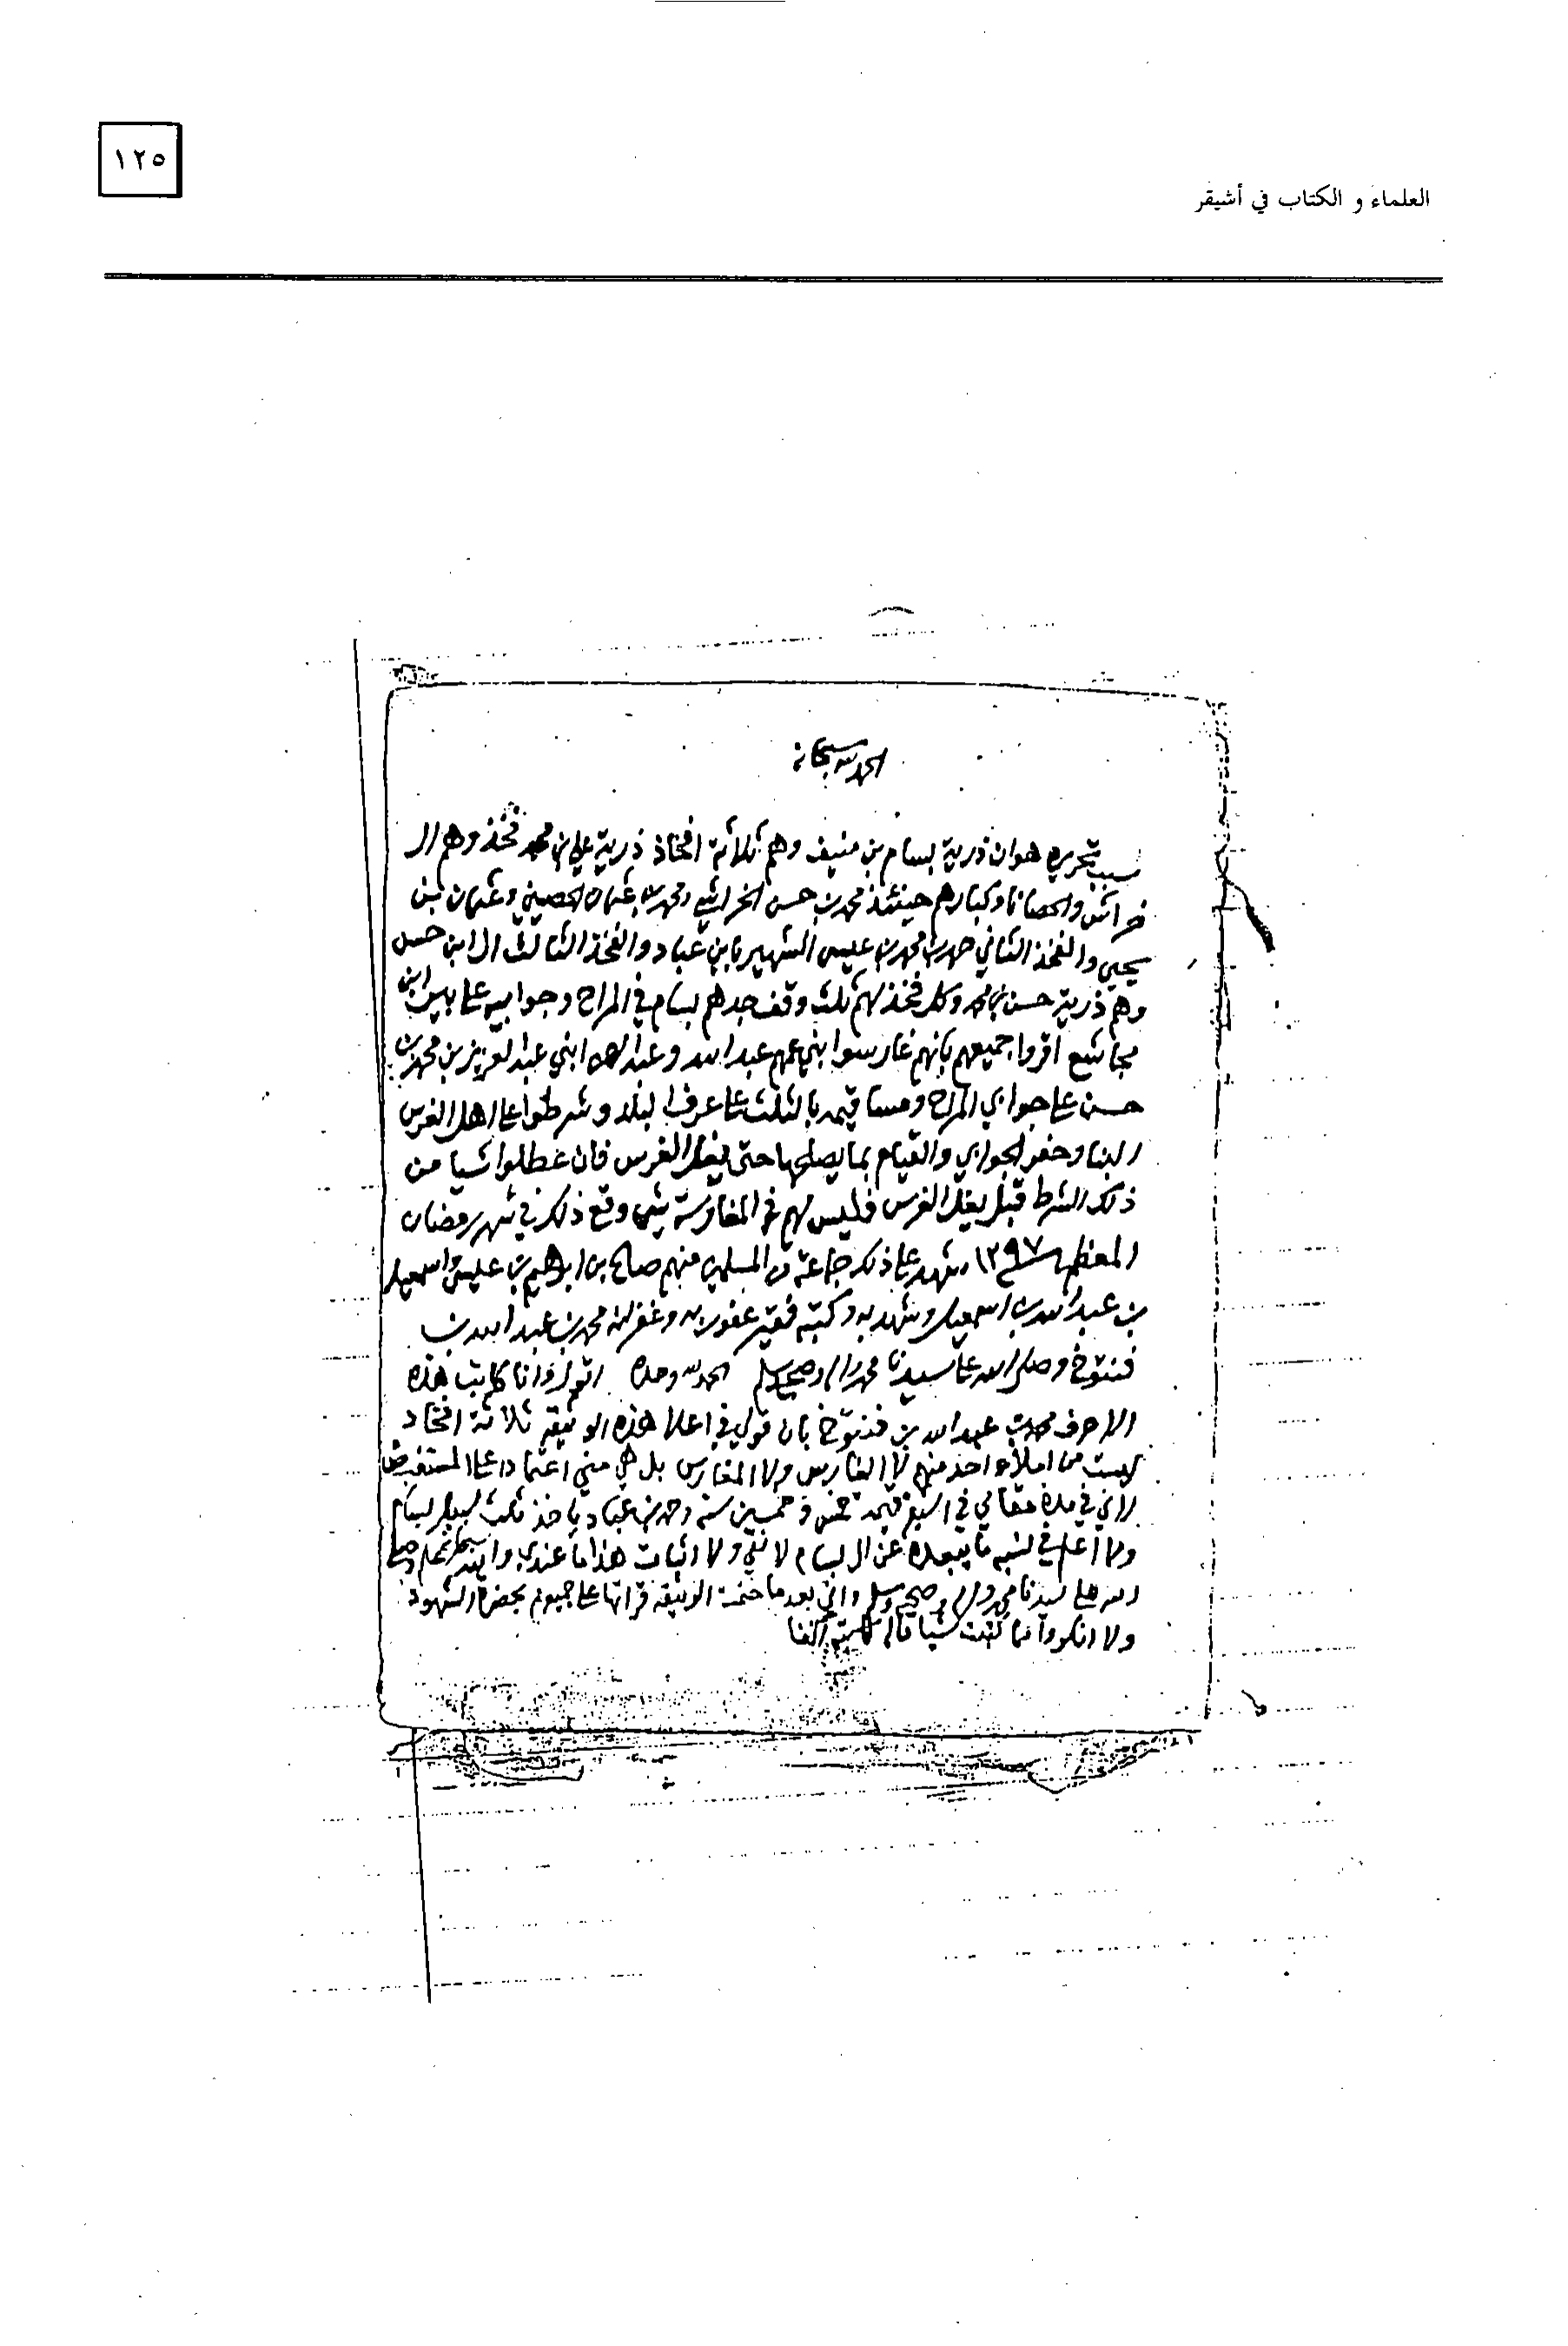 ١٢٥
العلماء و الكتاب في أشيقر
الحمد لله سبحانه
سبب تحريره هو ان ذرية بسام بن منيف وهم ثلاثة افخاذ ذرية علي بن محمد فخذ وهم ال
خراشي والحصانا وكبارهم حينئذ محمد بن حسن الخراشي ومحمد بن عثمان الحصيني وعثمان بن
يحيى والفخذ الثاني حمد بن محمد بن عيسى الشهير بابن عباد والفخذ الثالث ال ابن حسن
وهم ذرية حسن بن محمد وكل فخذ لهم ثلث وقف جدهم بسام في المراح وجوابيه على بير ابن
مجاشع اقروا جميعهم بانهم غارسوا ابني عمهم عبد الله و ابني عبد العزيز بن محمد بن
حسن على جوابي المراح ومساقيه بالثلث على عرف البلد وشرطوا على اهل الغرس
البنا وحفر الجوابي والقيام بما يصلحها حتى يغل الغرس فان عطلوا شيا من
ذلك الشرط قبل يغل الغرس فليس لهم في المغارسة شي وقع ذلك في شهر رمضان
المعظم ١٢٩٧ شهد على ذلك جماعة من المسلمين منهم صالح بن ابراهيم بن عيسى واسمعيل
بن عبد الله بن اسمعيل وشهد به وكتبه فقير عفو ربه وغفرانه محمد بن عبد الله بن
فنتوخ وصلى الله على سيدنا محمد واله وصحبه وسلم الحمد لله وحده اقول وانا كاتب هذه
الاحرف محمد بن عبد الله بن فنتوخ بان قولي في اعلا هذه الوثيقة ثلاثة افخاذ
ليست من املاء واحد منهم لا الغارس ولا المغارس بل هي مني اعتمادا على المستفيض
لاني في مدة مقامي في اشيقر خمس وخمسين سنة وحمد بن عباد ياخذ ثلث سبيل بسام
ولا اعلم في نسبه ما يبعده عن ال بسام لا نفي ولا اثبات هذا ما عندي والله وصلى
الله على سيدنا محمد واله وصحبه وسلم واني بعد ما ختمت الوثيقة قراتها على جميعهم بحضرة الشهود
ولا انكروا مما كتبت شيا قاله كاتبه آنفا